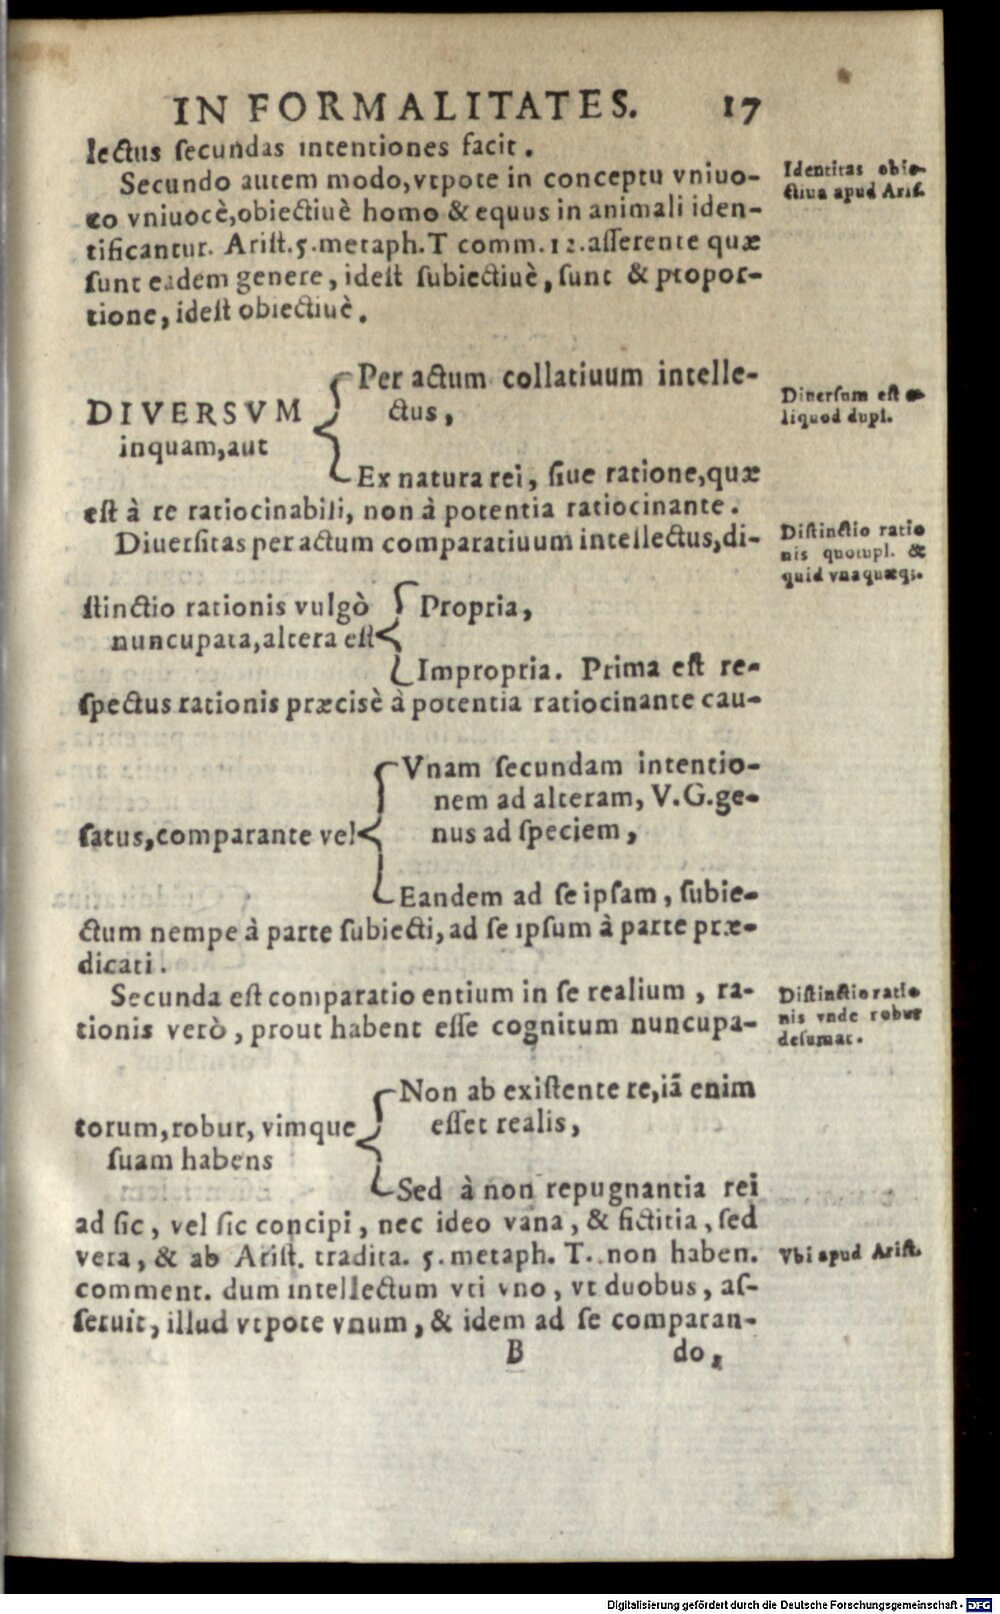 IN FORMALITATES. 17
lectus secundas intentiones facit.
Secundo autem modo, vtpote in conceptu vniuo-
co vniuocè, obiectiuè homo & equus in animali iden-
tificantur. Arist. 5. metaph. T comm. 12. asserente quæ
sunt eadem genere, idest subiectiuè, sunt & propor-
tione, idest obiectiuè.
Identitas obie-
ctiua apud Aris.
DIVERSVM
inquam, aut
Per actum collatiuum intelle-
ctus,
Ex natura rei, siue ratione, quæ
est à re ratiocinabili, non à potentia ratiocinante.
Diuersum est a-
liquod dupl.
Diuersitas per actum comparatiuum intellectus, di-
stinctio rationis vulgò
nuncupata, altera est
Propria,
Impropria. Prima est re-
spectus rationis præcisè à potentia ratiocinante cau-
Distinctio ratio
nis quotupl. &
quid vnaquæq;.
satus, comparante vel
Vnam secundam intentio-
nem ad alteram, V.G. ge-
nus ad speciem,
Eandem ad se ipsam, subie-
ctum nempe à parte subiecti, ad se ipsum à parte præ-
dicati.
Secunda est comparatio entium in se realium, ra-
tionis verò, prout habent esse cognitum nuncupa-
Distinctio ratio
nis vnde robur
desumat.
torum, robur, vimque
suam habens
Non ab existente re, iā enim
esset realis,
Sed à non repugnantia rei
ad sic, vel sic concipi, nec ideo vana, & fictitia, sed
vera, & ab Arist. tradita. 5. metaph. T. non haben.
comment. dum intellectum vti vno, vt duobus, as-
seruit, illud vtpote vnum, & idem ad se comparan-
Vbi apud Arist.
B do,
Digitalisierung gefördert durch die Deutsche Forschungsgemeinschaft - DFG